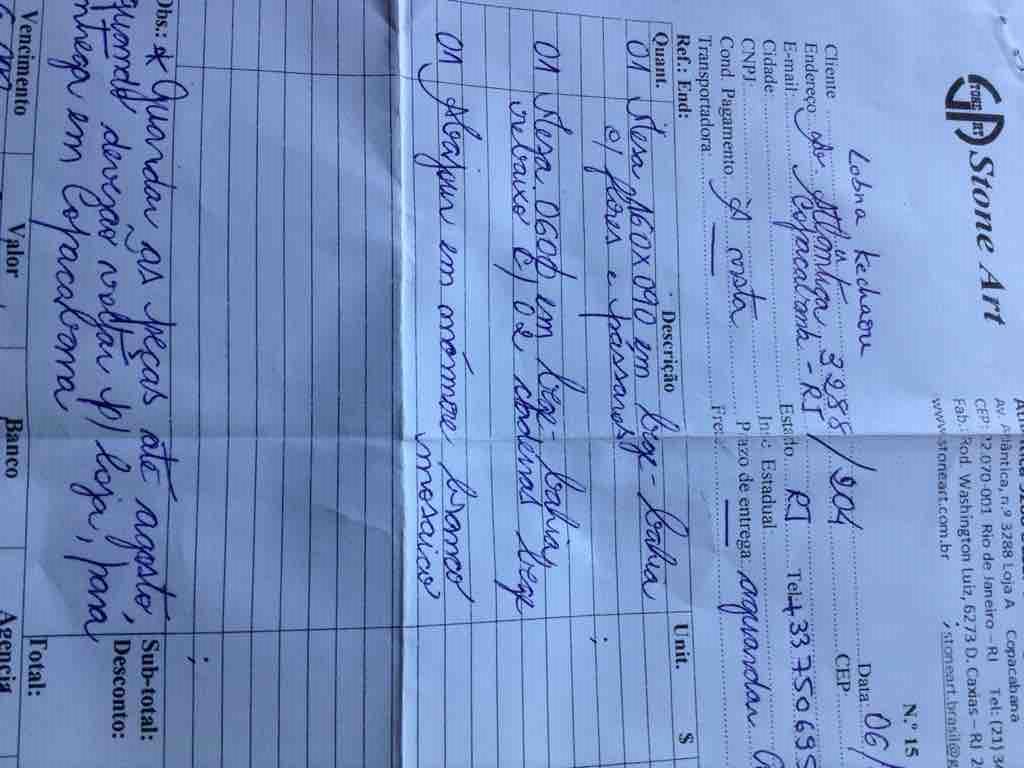 STONE ART
Stone Art
Av. Atlântica, n.º 3288 Loja A Copacabana
CEP: 22.070-001 Rio de Janeiro – RJ Tel: (21)
Fab.: Rod. Washington Luiz, 6273 D. Caxias – RJ
www.stoneart.com.br ; stoneart.brasil@g
N.º 15
Data: 06/
Cliente Lobna Kechaou
Endereço Av. Atlântica 3288/204 CEP:
E-mail Copacabana - RJ Estado RJ Tel +33 750695
Cidade
CNPJ Insc Estadual
Cond. Pagamento À vista Prazo de entrega aguardar
Transportadora: — Frete: —
Ref.: End:
Quant. Descrição Unit. $
01 Mesa 160x090 em bege-bahia
c/ flores e pássaros ;
01 Mesa 060Ø em bege-bahia,
rebaixo c/ 02 cadeiras bege
01 Abajur em mármore branco
mosaico
;
Obs.: * Guardar as peças até agosto, Sub-total:
quando deverão voltar p/ loja, para Desconto:
entrega em Copacabana Total:
Vencimento Valor Banco Agencia